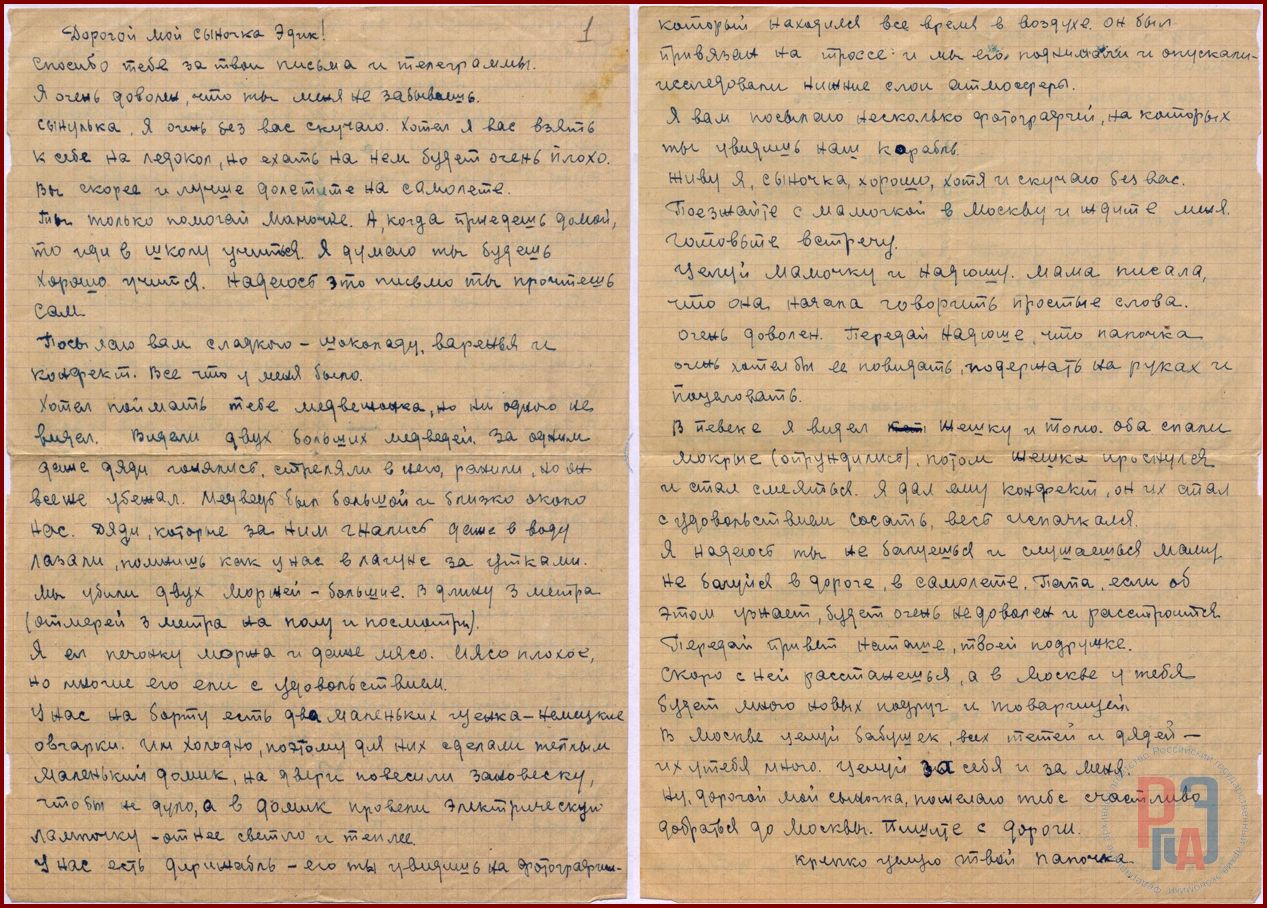 1
Дорогой мой сыночка Эдик!
Спосибо тебе за твои письма и телеграммы.
Я очень доволен, что ты меня не забываешь.
Сынулька, я очень без вас скучаю. Хотел я вас взять
к себе на ледокол, но ехать на нем будет очень плохо.
Вы скорее и лучше долетите на самолете.
Ты только помогай мамочке. А, когда приедешь домой,
то иди в школу учиться. Я думаю ты будешь
хорошо учится. Надеюсь это письмо ты прочтешь
сам.
Посылаю вам сладкого – шоколаду, варенья и
конфект. Все что у меня было.
Хотел поймать тебе медвежонка, но ни одного не
видел. Видели двух больших медведей. За одним
даже дяди гонялись, стреляли в него, ранили, но он
все же убежал. Медведь был большой и близко около
нас. Дяди, которые за ним гнались даже в воду
лазали, помнишь как у нас в лагуне за утками.
Мы убили двух моржей – большие. В длину 3 метра
(отмерей 3 метра на полу и посмотри).
Я ел печонку моржа и даже мясо. Мясо плохое,
но многие его ели с удовольствием.
У нас на борту есть два маленьких щенка – немецкие
овчарки. Им холодно, поэтому для них сделали теплым
маленький домик, на двери повесили зановеску,
чтобы не дуло, а в домик провели электрическую
лампочку – от нее светло и теплее.
У нас есть дирижабль – его ты увидишь на фотографии-
который находился все время в воздухе. он был
привязан на троссе и мы его поднимали и опускали-
исследовали нижние слои атмосферы.
Я вам посылаю несколько фотографий, на которых
ты увидишь наш корабль.
Живу я, сыночка, хорошо, хотя и скучаю без вас.
Поезжайте с мамочкой в Москву и ждите меня.
Готовьте встречу.
Целуй мамочку и Надюшу. Мама писала,
что она начала говорить простые слова.
Очень доволен. Передай Надюше, что папочка
очень хотел бы ее повидать, подержать на руках и
поцеловать.
В Певеке я видел Шешку и Толю. Оба спали
мокрые (опрудились), потом Шешка проснулся
и стал смеяться. Я дал ему конфект, он их стал
с удовольствием сосать, весь испачкался.
Я надеюсь ты не балуешься и слушаешься маму
не балуйся в дороге, в самолете. Папа, если об
этом узнает, будет очень недоволен и расстроится
Передай привет Наташе, твоей подружке.
Скоро с ней расстанешься, а в Москве у тебя
будет много новых подруг и товарищей.
В Москве целуй бабушек, всех тетей и дядей –
их у тебя много. Целуй за себя и за меня.
Ну, дорогой мой сыночка, пожелаю тебе счастливо
добраться до Москвы. Пишите с дороги.
крепко целую твой папочка
РГАЭ